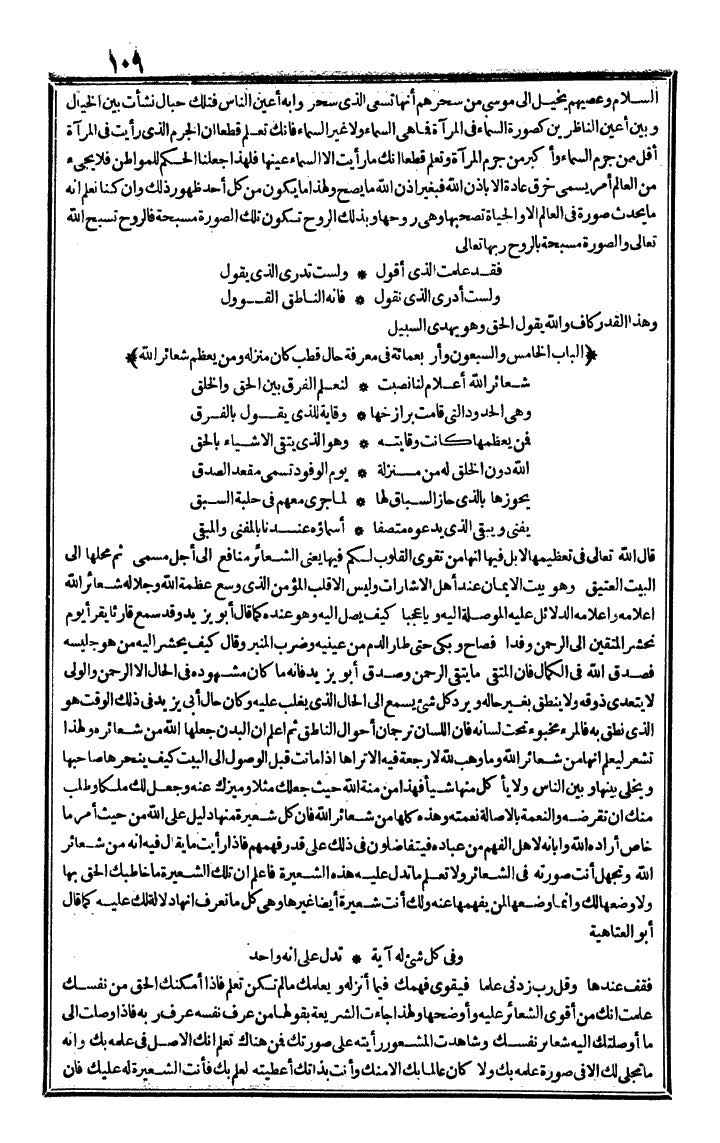 ١٠٩
السلام وعصيهم يخيل الى موسى من سحرهم أنها تسعى الذى سحر وابه أعين الناس فتلك حبال نشأت بين الخيال
وبين أعين الناظرين كصورة السماء فى المرآة فاهى السماء ولا غير السماء فانك تعلم قطعا ان الجرم الذى رأيت فى المرآة
أقل من جرم السماء وأكبر من جرم المرآة وتعلم قطعا انك ما رأيت الا السماء عينها فلهذا جعلنا الحكم للمواطن فلا يجىء
من العالم أمر يسمى خرق عادة الا باذن الله فبغير اذن الله ما يصح ولهذا ما يكون من كل أحد ظهور ذلك وان كنا نعلم انه
ما يحدث صورة فى العالم الا والحياة تصحبها وهى روحها وبذلك الروح تكون تلك الصورة مسبحة فالروح تسبح الله
تعالى والصورة مسبحة بالروح ربها تعالى
فقد علمت الذى أقول * ولست تدرى الذى يقول
ولست أدرى الذى نقول * فانه الناطق القوول
وهذا القدر كاف والله يقول الحق وهو يهدى السبيل
﴿الباب الخامس والسبعون وأربعمائة فى معرفة حال قطب كان منزله ومن يعظم شعائر الله﴾
شعائر الله أعلام لنا نصبت * لنعلم الفرق بين الحق والخلق
وهى الحدود التى قامت برازخها * وقاية للذى يقول بالفرق
فمن يعظمها كانت وقايته * وهو الذى يتقى الاشياء بالحق
الله دون الخلق له من منزلة * يوم الوفود تسمى مقعد الصدق
يحوزها بالذى حاز السباق لها * لما جرى معهم فى حلبة السبق
يفنى ويبقى الذى يدعوه متصفا * أسماؤه عندنا بالمفنى والمبقى
قال الله تعالى فى تعظيمها لا بل فيها انها من تقوى القلوب لكم فيها يعنى الشعائر منافع الى أجل مسمى ثم محلها الى
البيت العتيق وهو بيت الايمان عند أهل الاشارات وليس الا قلب المؤمن الذى وسع عظمة الله وجلاله شعائر الله
اعلامه واعلامه الدلائل عليه الموصلة اليه ويا عجبا كيف يصل اليه وهو عنده كما قال أبو يزيد وقد سمع قارئا يقرأ يوم
نحشر المتقين الى الرحمن وفدا فصاح وبكى حتى طار الدم من عينيه وضرب المنبر وقال كيف يحشر اليه من هو جليسه
فصدق الله فى الكمال فان المتقى ما يتقى الرحمن وصدق أبو يزيد فانه ما كان مشهوده فى الحال الا الرحمن والولى
لا يتعدى ذوقه ولا ينطق بغير حاله ويرد كل شئ يسمع الى الحال الذى يغلب عليه وكان حال أبى يزيد فى ذلك الوقت هو
الذى نطق به فالمرء مخبوء تحت لسانه فان اللسان ترجمان أحوال الناطق ثم اعلم ان البدن جعلها الله من شعائره ولهذا
تشعر ليعلم انها من شعائر الله وما وهب لله لا رجعة فيه الا تراها اذا ماتت قبل الوصول الى البيت كيف ينحرها صاحبها
ويخلى بينها وبين الناس ولا يأكل منها شيأ فهذا من منة الله حيث جعلك مثلا وميزك عنه وجعل لك ملكا وطلب
منك ان تقرضه والنعمة بالاصالة نعمته وهذه كلها من شعائر الله فان كل شعيرة منها دليل على الله من حيث أمر ما
خاص أراده الله وابانه لاهل الفهم من عباده فيتفاضلون فى ذلك على قدر فهمهم فاذا رأيت ما يقال فيه انه من شعائر
الله وتجهل أنت صورته فى الشعائر ولا تعلم ما تدل عليه هذه الشعيرة فاعلم ان تلك الشعيرة ما خاطبك الحق بها
ولا وضعها لك وانما وضعها لمن يفهمها عنه ولك أنت شعيرة أيضا غيرها وهى كل ما تعرف انها دلالة لك عليه كما قال
أبو العتاهية
وفى كل شئ له آية * تدل على انه واحد
فقف عندها وقل رب زدنى علما فيقوى فهمك فيما أنزله ويعلمك ما لم تكن تعلم فاذا أمكنك الحق من نفسك
علمت انك من أقوى الشعائر عليه وأوضحها ولهذا جاءت الشريعة بقولها من عرف نفسه عرف ربه فاذا وصلت الى
ما أوصلتك اليه شعائر نفسك وشاهدت المشعور رأيته على صورتك فمن هناك تعلم انك الاصل فى علمه بك وانه
ما تجلى لك الا فى صورة علمه بك ولا كان عالما بك الا منك وأنت بذاتك أعطيته لعلم بك فأنت الشعيرة له عليك فان